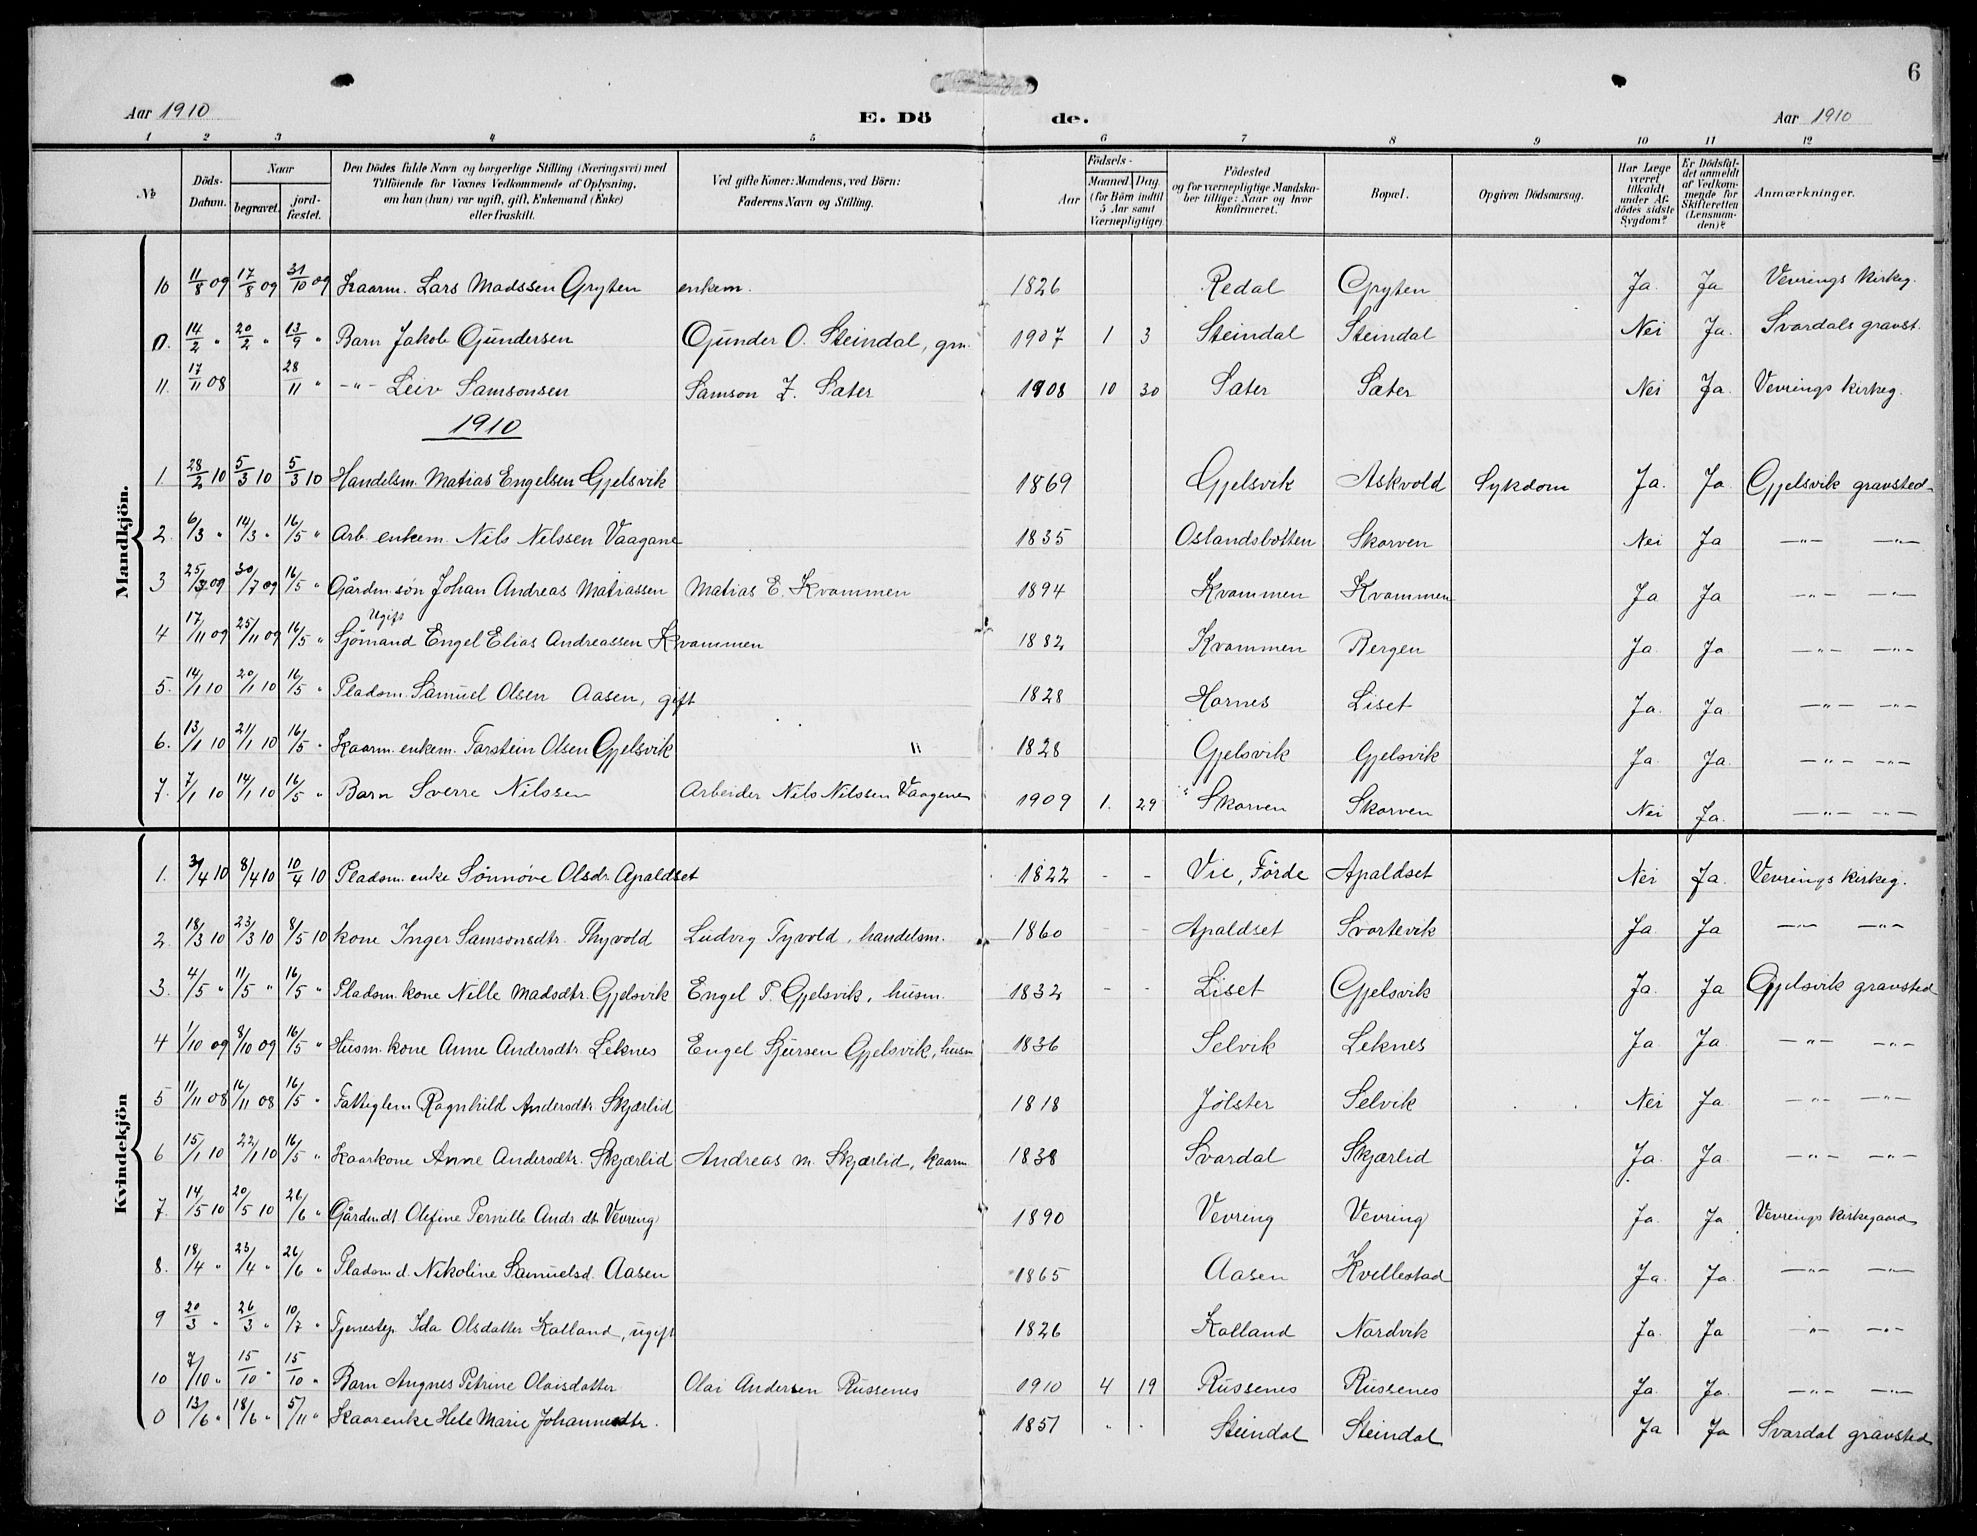 6
Aar 1910 E. Dö de. Aar 1910
1 2 3 4 5 6 7 8 9 10 11 12
№ Döds-Datum. Naar begravet. jord-fæstet. Den Dödes fulde Navn og borgerlige Stilling (Næringsvei) med Tilföiende for Voxnes Vedkommende af Oplysning, om han (hun) var ugift, gift, Enkemand (Enke) eller fraskilt. Ved gifte Koner: Mandens, ved Börn: Faderens Navn og Stilling. Födsels- Aar Maaned Dag (for Börn indtil 5 Aar samt Værnepligtige) Födested og for værnepligtige Mandska-ber tillige: Naar og hvor Konfirmeret. Bopæl. Opgiven Dödsaarsag. Har Læge været tilkaldt under Af-dödes sidste Sygdom? Er Dödsfal-det anmeldt af Vedkom-mende for Skifteretten (Lensman-den)? Anmærkninger.
Mandkjön.
10 11/8 09 17/8 09 31/10 09 Kaarm. Lars Madssen Gryten enkem. 1826 Redal Gryten Ja. Ja Vevrings Kirkeg.
0. 14/2 " 20/2 " 13/9 " Barn Jakob Gundersen Gunder O. Steindal, gm. 1907 1 3 Steindal Steindal Nei Ja. Svardals gravst.
11. 17/11 08 28/11 " -"- Leiv Samsonsen Samson Z. Sater 1908 10 30 Sater Sater Nei Ja. Vevrings kirkeg.
1910
1 28/2 10 5/3 10 5/3 10 Handelsm. Matias Engelsen Gjelsvik 1869 Gjelsvik Askvold Sykdom Ja. Ja Gjelsvik gravsted
2. 6/3 " 14/3 " 16/5 " Arb. enkem. Nils Nilssen Vaagane 1835 Oslandsbotten Skorven Nei Ja -"- -"-
3 25/3 09 30/7 09 16/5 " Gårdm. søn Johan Andreas Matiassen Matias E. Kvammen 1894 Kvammen Kvammen Ja Ja -"- -"-
4 17/11 09 25/11 09 16/5 " Ugift Sjømand Engel Elias Andreassen Kvammen 1882 Kvammen Bergen Ja. Ja -"- -"-
5. 14/1 10 20/1 10 16/5 " Pladsm. Samuel Olsen Aasen, gift 1828 Hornes Liset Ja. Ja -"- -"-
6. 13/1 10 21/1 10 16/5 " Kaarm. enkem. Torstein Olsen Gjelsvik " 1828 Gjelsvik Gjelsvik Ja. Ja. -"- -"-
7. 7/1 10 14/1 10 16/5 " Barn Sverre Nilssen Arbeider Nils Nilssen Vaagene 1909 1. 29 Skorven Skorven Nei Ja. -"- -"-
Kvindekjön
1. 3/4 10 8/4 10 10/4 10 Pladsm. enke Sønnøve Olsdr. Apaldset 1822 - - Vie, Förde Apaldset Nei Ja. Vevrings kirkeg.
2. 18/3 10 23/3 10 8/5 10 kone Inger Samsonsdtr. Thyvold Ludvig Tyvold, handelsm. 1860 - - Apaldset Svortevik Ja. Ja -"- -"-
3. 4/5 " 11/5 " 16/5 " Pladsm. kone Nille Madsdtr. Gjelsvik Engel P. Gjelsvik, husm. 1832 - - Liset Gjelsvik Ja. Ja Gjelsvik gravsted
4 1/10 09 8/10 09 16/5 " Husm. kone Anne Andersdtr. Leknes Engel Sjursen Gjelsvik, husm 1836 Selvik Leknes Ja Ja. -"- -"-
5 11/11 08 16/11 08 16/5 " Fattiglem Ragnhild Andersdtr. Skjærlid 1818 Jølster Selvik Nei Ja -"- -"-
6 15/1 10 22/1 10 16/5 " Kaarkone Anne Andersdtr. Skjærlid Andreas M. Skjærlid, kaarm 1838 Svardal Skjærlid Ja. Ja. -"- -"-
7. 14/5 10 20/5 10 26/6 " Gårdm.dt. Olefine Pernille Andr.dt. Vevring 1890 Vevring Vevring Ja. Ja Vevrings kirkegaard
8. 18/4 " 23/4 " 26/6 " Pladsm.d. Nikoline Samuelsd. Aasen 1865 Aasen Kvellestad Ja. Ja. -"- -"-
9 20/3 " 26/3 " 10/7 " Tjenestep. Ida Olsdatter Kalland, ugift 1826 Kalland Nordvik Ja. Ja -"- -"-
10 7/10 " 15/10 " 15/10 " Barn Angnes Petrine Olaisdatter Olai Andersen Russenes 1910 4 19 Russenes Russenes Ja. Ja. -"- -"-
0 13/6 " 18/6 " 5/11 " Kaarenke Hele Marie Johannesdtr. 1851 " " Steindal Steindal Ja Ja Svardal gravsted